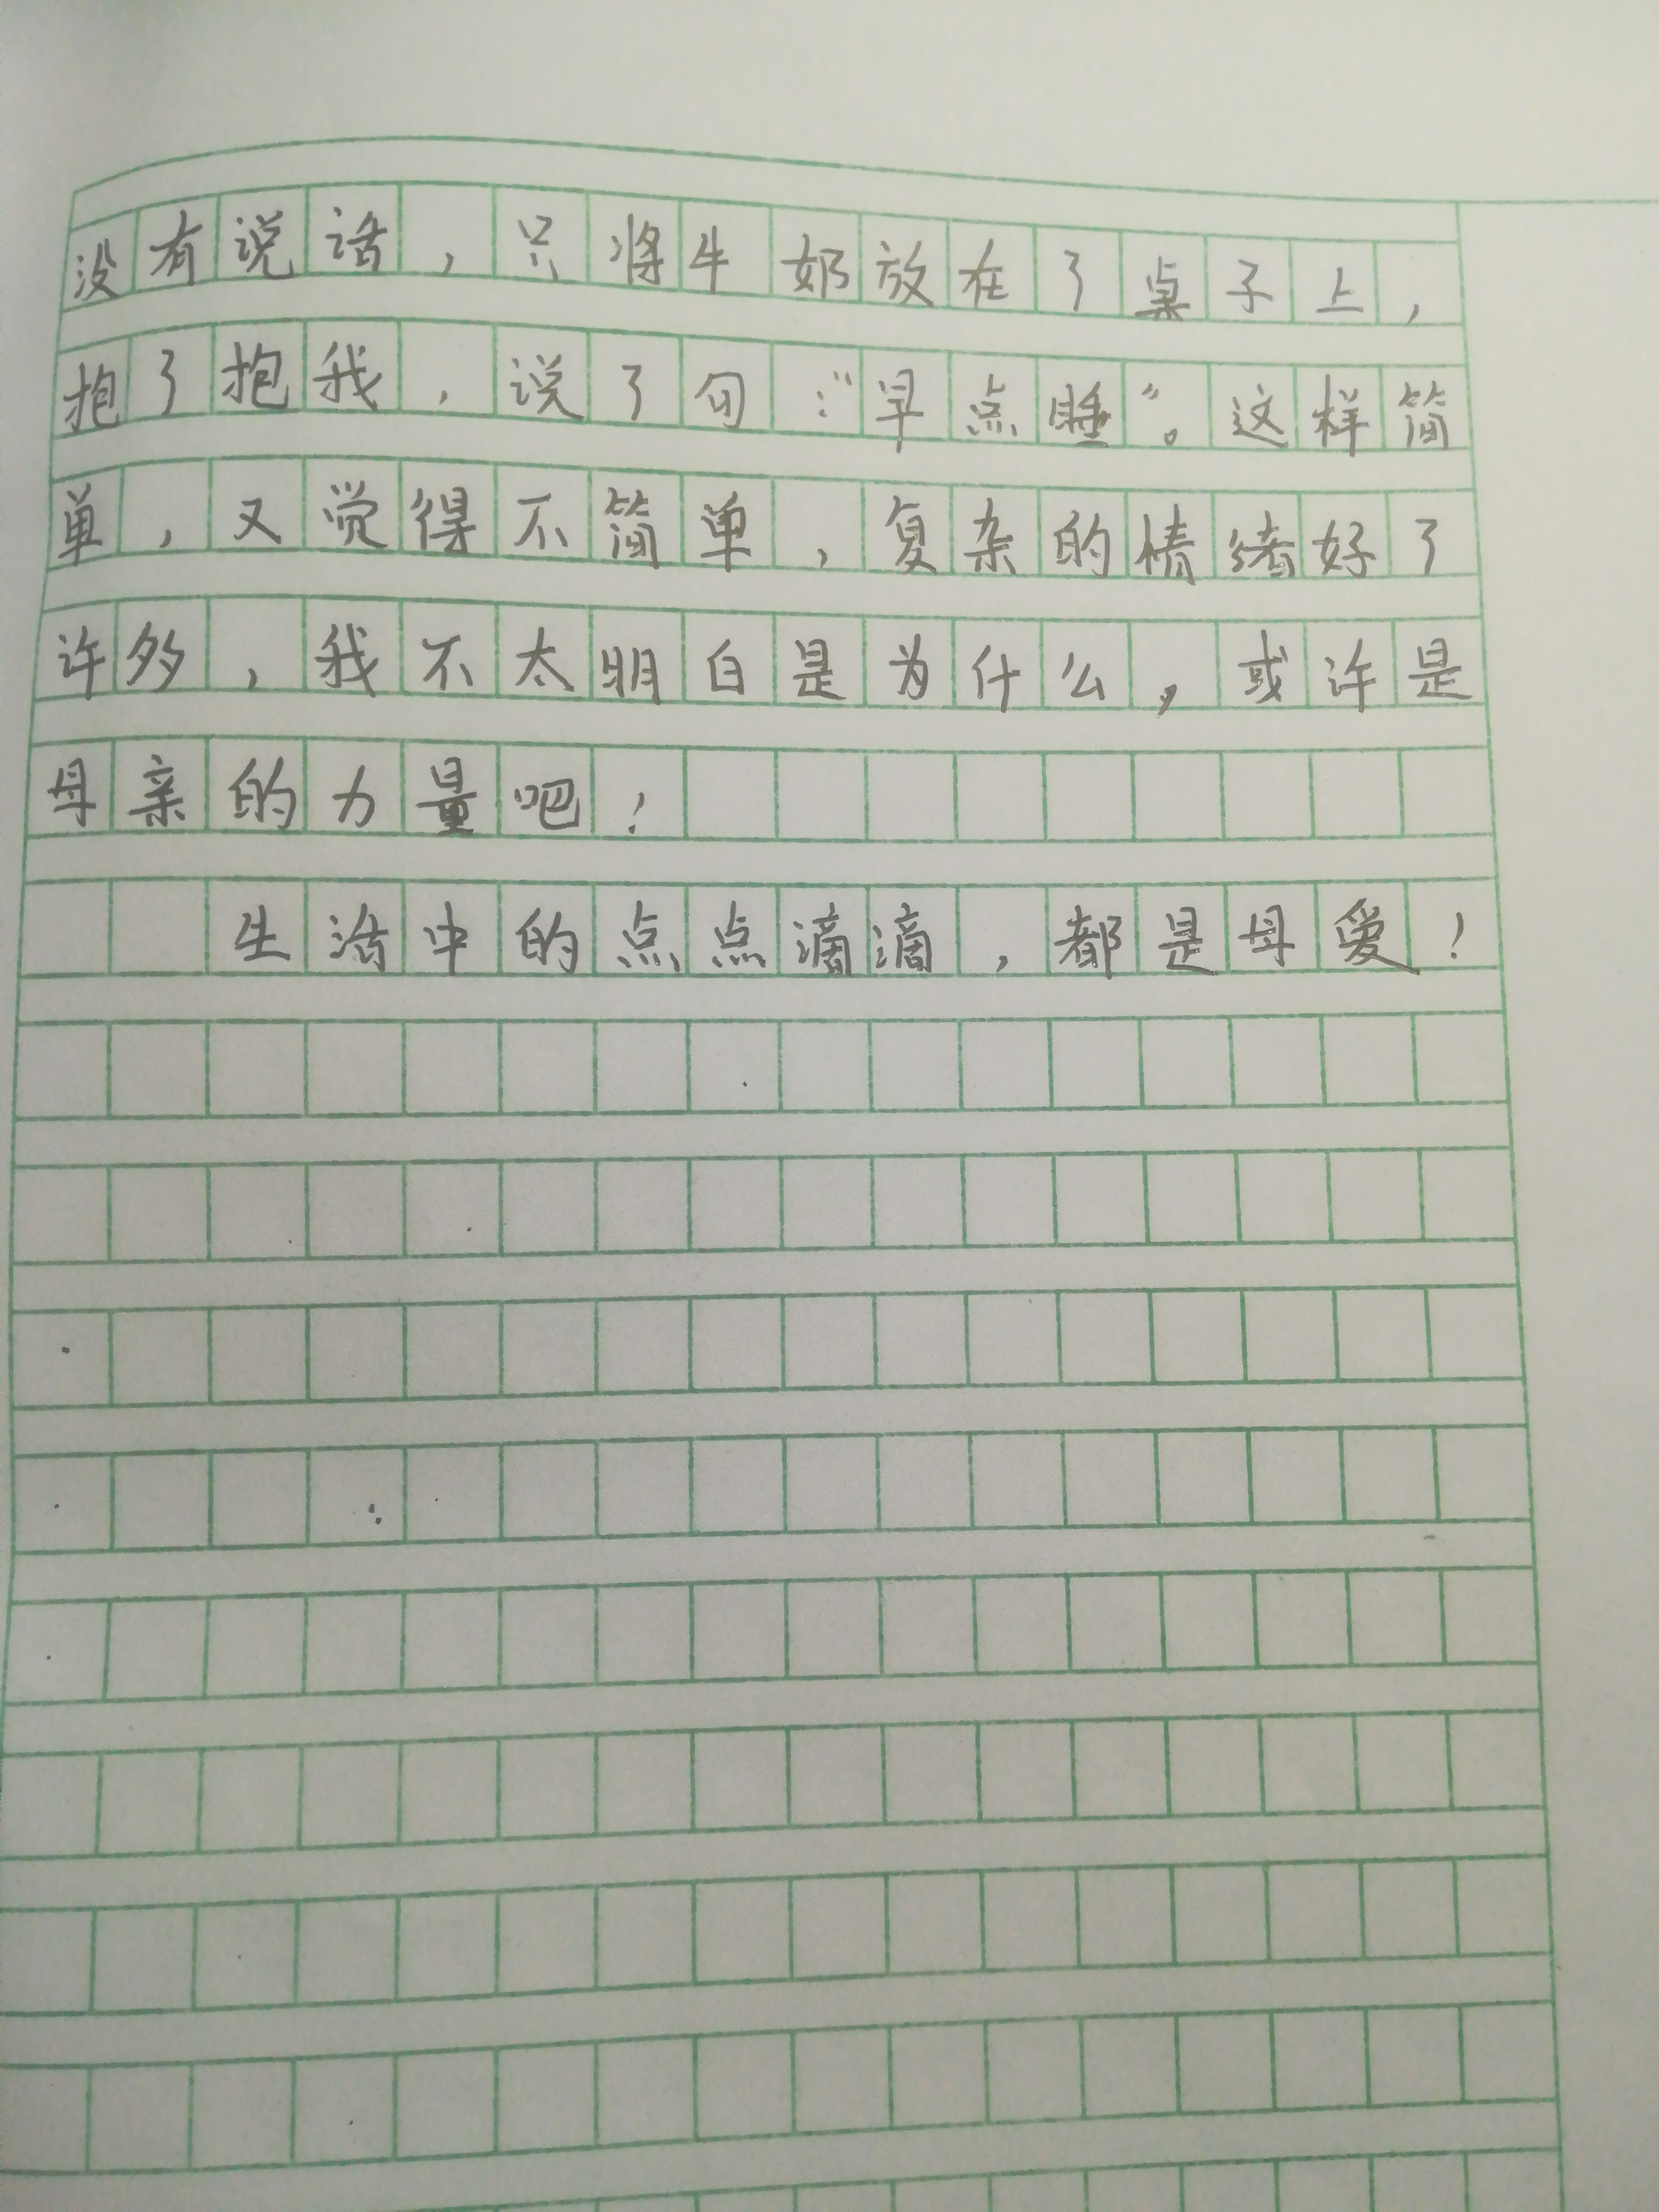 没有说话，只将牛奶放在了桌子上，
抱了抱我，说了句：“早点睡”。这样简
单，又觉得不简单，复杂的情绪好了
许多，我不太明白是为什么，或许是
母亲的力量吧！
生活中的点点滴滴，都是母爱！